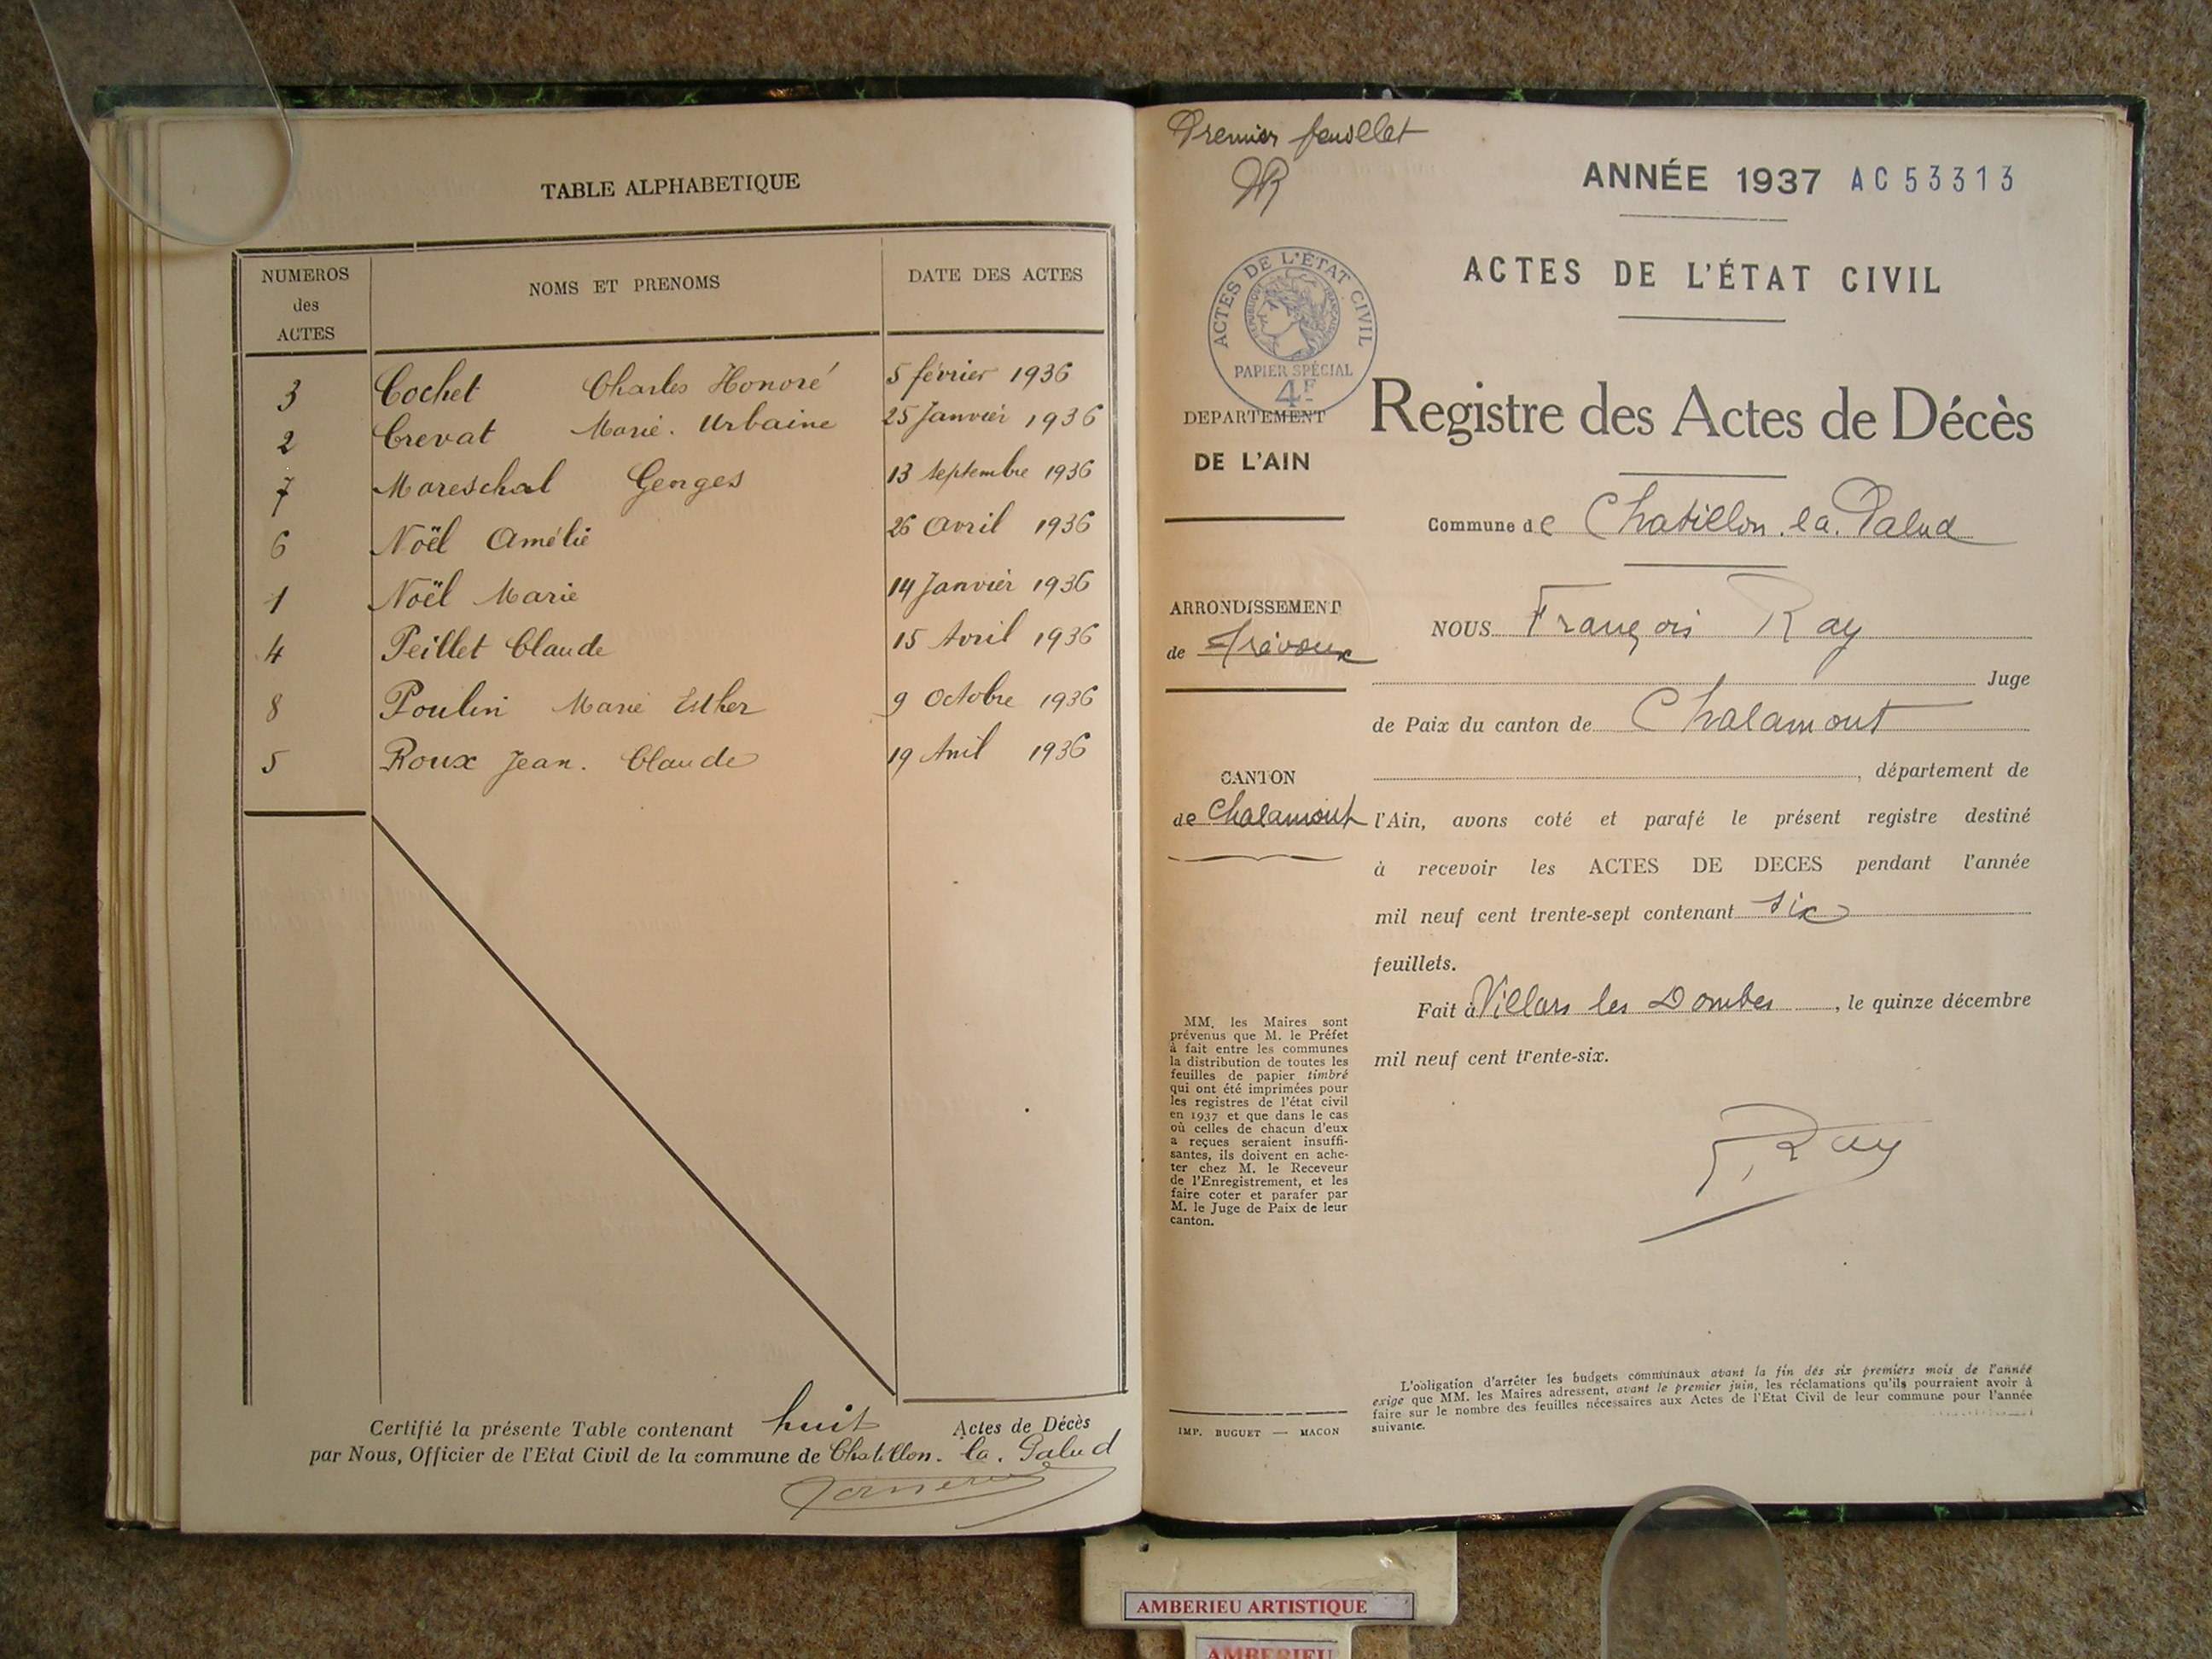 TABLE ALPHABETIQUE
NUMEROS
des
ACTES
NOMS ET PRENOMS
DATE DES ACTES
3 Cochet Charles Honoré 5 février 1936
2 Crevat Marie. Urbaine 25 Janvier 1936
7 Mareschal Georges 13 Septembre 1936
6 Noël Amélie 26 Avril 1936
1 Noël Marie 14 Janvier 1936
4 Peillet Claude 15 Avril 1936
8 Poulin Marie Esther 9 Octobre 1936
5 Roux Jean. Claude 19 Avril 1936
Certifié la présente Table contenant huit Actes de Décès
par Nous, Officier de l'Etat Civil de la commune de Chatillon. la. Palud
Premier feuillet
ANNÉE 1937 AC53313
ACTES DE L'ÉTAT CIVIL
ACTES DE L'ÉTAT CIVIL
RÉPUBLIQUE FRANÇAISE
PAPIER SPÉCIAL
4F
DEPARTEMENT
DE L'AIN
Registre des Actes de Décès
Commune de Chatillon. la. Palud
ARRONDISSEMENT
de Trévoux
CANTON
de Chalamont
NOUS François Ray
Juge
de Paix du canton de Chalamont
, département de
l'Ain, avons coté et parafé le présent registre destiné
à recevoir les ACTES DE DECES pendant l'année
mil neuf cent trente-sept contenant six
feuillets.
Fait à Villars les Dombes, le quinze décembre
mil neuf cent trente-six.
F. Ray
MM. les Maires sont
prévenus que M. le Préfet
à fait entre les communes
la distribution de toutes les
feuilles de papier timbré
qui ont été imprimées pour
les registres de l'état civil
en 1937 et que dans le cas
où celles de chacun d'eux
a reçues seraient insuffi-
santes, ils doivent en ache-
ter chez M. le Receveur
de l'Enregistrement, et les
faire coter et parafer par
M. le Juge de Paix de leur
canton.
IMP. BUGUET — MACON
L'obligation d'arrêter les budgets communaux avant la fin des six premiers mois de l'année
exige que MM. les Maires adressent, avant le premier juin, les réclamations qu'ils pourraient avoir à
faire sur le nombre des feuilles nécessaires aux Actes de l'Etat Civil de leur commune pour l'année
suivante.
AMBERIEU ARTISTIQUE
AMBERIEU